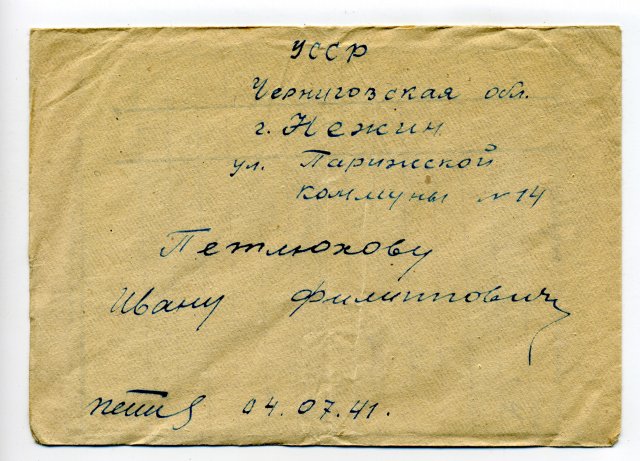 УССР
Черниговская обл.
г. Нежин
ул. Парижской
коммуны N 14
Петлюхову
Ивану Филипповичу
04.07.41.